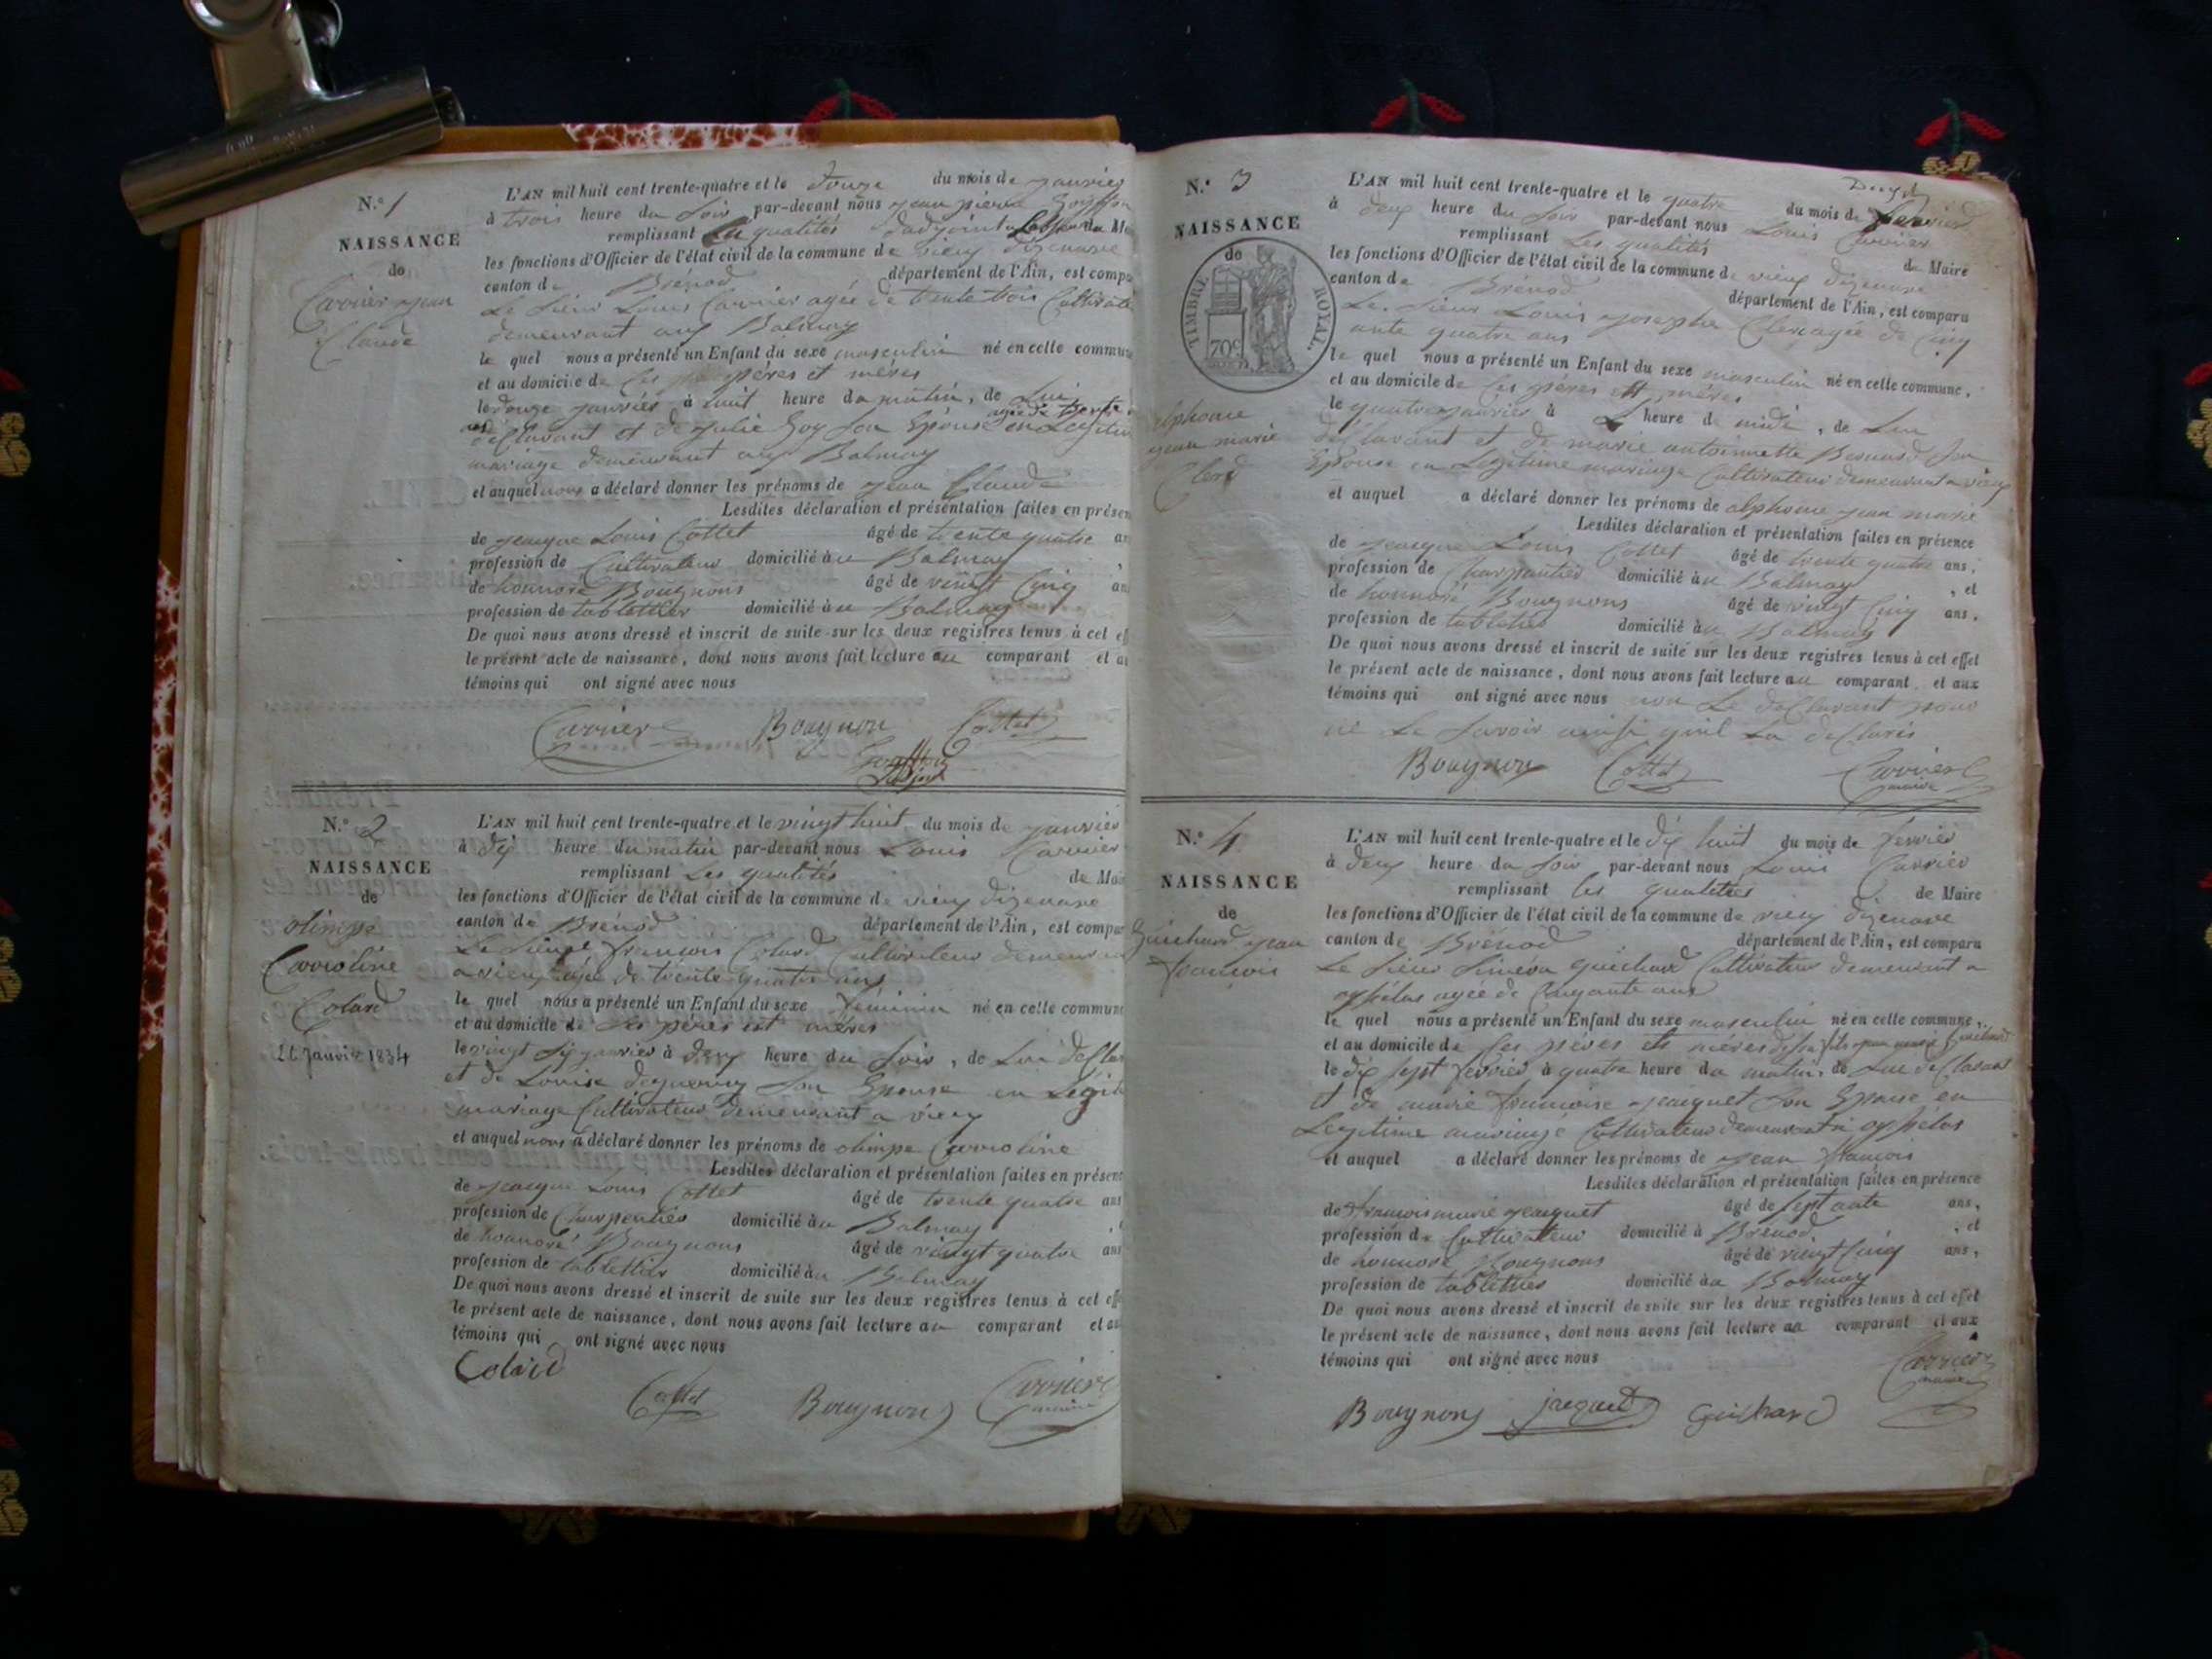 N.° 1
NAISSANCE
de
Carrier jean
Claude
L'AN mil huit cent trente-quatre et le douze du mois de janvier
à trois heure du soir par-devant nous jean pierre
remplissant les qualités d'adjoint
les fonctions d'Officier de l'état civil de la commune de vieux dizenave
canton de Brénod département de l'Ain, est compa
Le sieur Louis Carrier agée de trente trois Cultivate
demeurant aux Balmay
le quel nous a présenté un Enfant du sexe masculin né en cette commune
et au domicile de ses pères et mères
le douze janvier à huit heure du matin, de Lui
déClarant et de julie Goy son Epouse en Legitim
mariage demeurant aux Balmay
et auquel nous a déclaré donner les prénoms de jean Claude
Lesdites déclaration et présentation faites en présen
de jacque Louis Cottet âgé de trente quatre an
profession de Cultivateur domicilié à u Balmay
de honnoré Bougnons âgé de vingt Cinq an
profession de tablettier domicilié à u Balmay
De quoi nous avons dressé et inscrit de suite sur les deux registres tenus à cet ef
le présent acte de naissance, dont nous avons fait lecture au comparant et a
témoins qui ont signé avec nous
Carrier Bougnon Cottet
N.° 2
NAISSANCE
de
olimpe
Carroline
Colard
26 Janvier 1834
L'AN mil huit cent trente-quatre et le vingt huit du mois de janvier
à dix heure du matin par-devant nous Louis Carrier
remplissant Les qualités de Mai
les fonctions d'Officier de l'état civil de la commune de vieux dizenave
canton de Brénod département de l'Ain, est compar
Le sieur françois Colard Cultivateur demeurant
a vieux agée de trente quatre ans
le quel nous a présenté un Enfant du sexe féminin né en cette commune
et au domicile de ses pères et mères
le vingt six janvier à deux heure du soir, de Lui déClar
et de Louise son Epouse en Légit
mariage Cultivateur demeurant a vieux
et auquel nous a déclaré donner les prénoms de olimpe Carroline
Lesdites déclaration et présentation faites en présen
de jacque Louis Cottet âgé de trente quatre ans
profession de Charpentier domicilié à u Balmay
de honnoré Bougnons âgé de vingt quatre ans
profession de tablettier domicilié à u Balmay
De quoi nous avons dressé et inscrit de suite sur les deux registres tenus à cet eff
le présent acte de naissance, dont nous avons fait lecture au comparant et au
témoins qui ont signé avec nous
Colard
Cottet Bougnons Carrier
maire
N.° 3
NAISSANCE
de
TIMBRE ROYAL.
70c
alphonse
jean marie
Clerc
L'AN mil huit cent trente-quatre et le quatre du mois de
à deux heure du soir par-devant nous Louis Carrier
remplissant Les qualités de Maire
les fonctions d'Officier de l'état civil de la commune de vieux dizenave
canton de Brénod département de l'Ain, est comparu
Le sieur Louis josephe Clerc agée de Cinq
ante quatre ans
le quel nous a présenté un Enfant du sexe masculin né en cette commune,
et au domicile de ses pères et mères
le quatre janvier à heure de midi, de Lui
déClarant et de marie antoinette Bernard son
Epouse en Legitime mariage Cultivateur demeurant a vieux
et auquel a déclaré donner les prénoms de alphonse jean marie
Lesdites déclaration et présentation faites en présence
de jacque Louis Cottet âgé de trente quatre ans,
profession de Charpentier domicilié à u Balmay, et
de honnoré Bougnons âgé de vingt Cinq ans,
profession de tablettier domicilié à u Balmay
De quoi nous avons dressé et inscrit de suite sur les deux registres tenus à cet effet
le présent acte de naissance, dont nous avons fait lecture au comparant et aux
témoins qui ont signé avec nous non Le déClarant pour
ne Le savoir ainsi quil La déClaré
Bougnon Cottet Carrier
maire
N.° 4
NAISSANCE
de
Guichard jean
françois
L'AN mil huit cent trente-quatre et le dix huit du mois de fevrier
à deux heure du soir par-devant nous Louis Carrier
remplissant les qualités de Maire
les fonctions d'Officier de l'état civil de la commune de vieux dizenave
canton de Brénod département de l'Ain, est comparu
Le sieur Siméon guichard Cultivateur demeurant a
ophelas agée de Cinqante ans
le quel nous a présenté un Enfant du sexe masculin né en cette commune,
et au domicile de ses pères et mères
le dix sept fevrier à quatre heure du matin, de Lui déClarant
et de marie françoise jacquet son Epouse en
Legitime mariage Cultivateur demeurant a ophelas
et auquel a déclaré donner les prénoms de jean françois
Lesdites déclaration et présentation faites en présence
de françois marie jacquet âgé de septante ans,
profession de Cultivateur domicilié à Brénod, et
de honnoré Bougnons âgé de vingt Cinq ans,
profession de tablettier domicilié à u Balmay
De quoi nous avons dressé et inscrit de suite sur les deux registres tenus à cet effet
le présent acte de naissance, dont nous avons fait lecture au comparant et aux
témoins qui ont signé avec nous
Carrier
maire
Bougnons jacquet Guichard